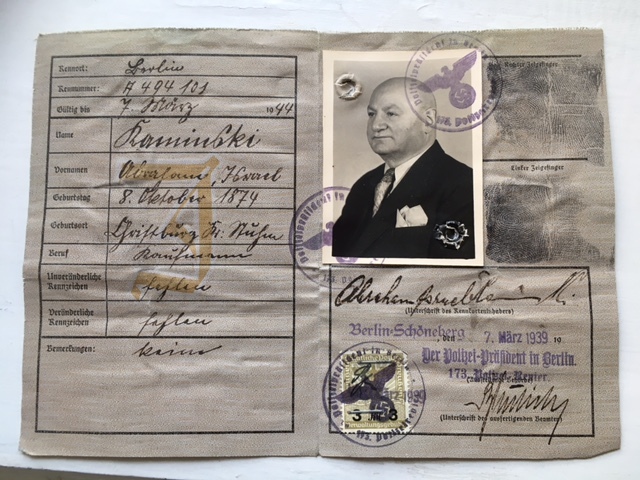 Kennort: Berlin
Kennummer: A 494101
Gültig bis 7. März 1944
Name Kaminski
Vornamen Abraham, Israel
Geburtstag 8. Oktober 1874
Geburtsort Christburg Kr. Stuhm
Beruf Kaufmann
Unveränderliche
Kennzeichen fehlen
Veränderliche
Kennzeichen fehlen
Bemerkungen: keine
J
Rechter Zeigefinger
Linker Zeigefinger
Abraham Israel Kaminski
(Unterschrift des Kennkarteninhabers)
Berlin-Schöneberg, den 7. März 1939 19
Der Polizei-Präsident in Berlin.
173. Polizei-Revier.
(Unterschrift des ausfertigenden Beamten)
Polizeipräsident in
Polizeipräsident in
Polizeipräsident in Berlin
3 3
Verwaltungsgebühr